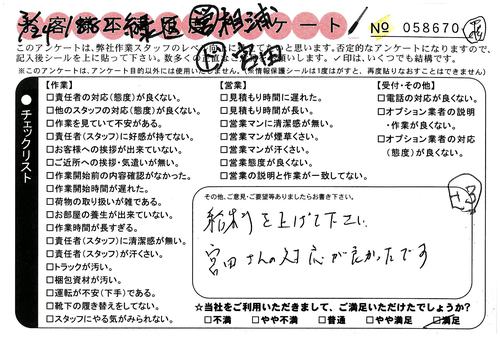 ケート!
№ 058670
このアンケートは、弊社作業スタッフのレベル向上に役立てたいと思います。否定的なアンケートになりますので、
記入後シールを上に貼って下さい。数多くの正直なご意見お願いします。✓印は、いくつでも結構です。
※このアンケートは、アンケート目的以外には使用いたしません。(※情報保護シールは1度はがすと、再度貼りなおすことはできません)
チェックリスト
【作業】
□責任者の対応(態度)が良くない。
□他のスタッフの対応(態度)が良くない。
□作業を見ていて不安がある。
□責任者(スタッフ)に好感が持てない。
□お客様への挨拶が出来ていない。
□ご近所への挨拶・気遣いが無い。
□作業開始前の内容確認がなかった。
□作業開始時間が遅れた。
□荷物の取り扱いが雑である。
□お部屋の養生が出来ていない。
□作業時間が長すぎる。
□責任者(スタッフ)に清潔感が無い。
□責任者(スタッフ)が汗くさい。
□トラックが汚い。
□梱包資材が汚い。
□運転が不安(下手)である。
□靴下の履き替えをしてない。
□スタッフにやる気がみられない。
【営業】
□見積もり時間に遅れた。
□見積もり時間が長い。
□営業マンに清潔感が無い。
□営業マンが煙草くさい。
□営業マンが汗くさい。
□営業態度が良くない。
□営業の説明と作業が一致してない。
【受付・その他】
□電話の対応が良くない。
□オプション業者の説明
・作業が良くない。
□オプション業者の対応
(態度)が良くない。
その他、ご意見・ご要望等ありましたらお書き下さい。
給料を上げて下さい
宮田さんの対応が良かったです
☆当社をご利用いただきまして、ご満足いただけたでしょうか?
□不満 □やや不満 □普通 □やや満足 □満足